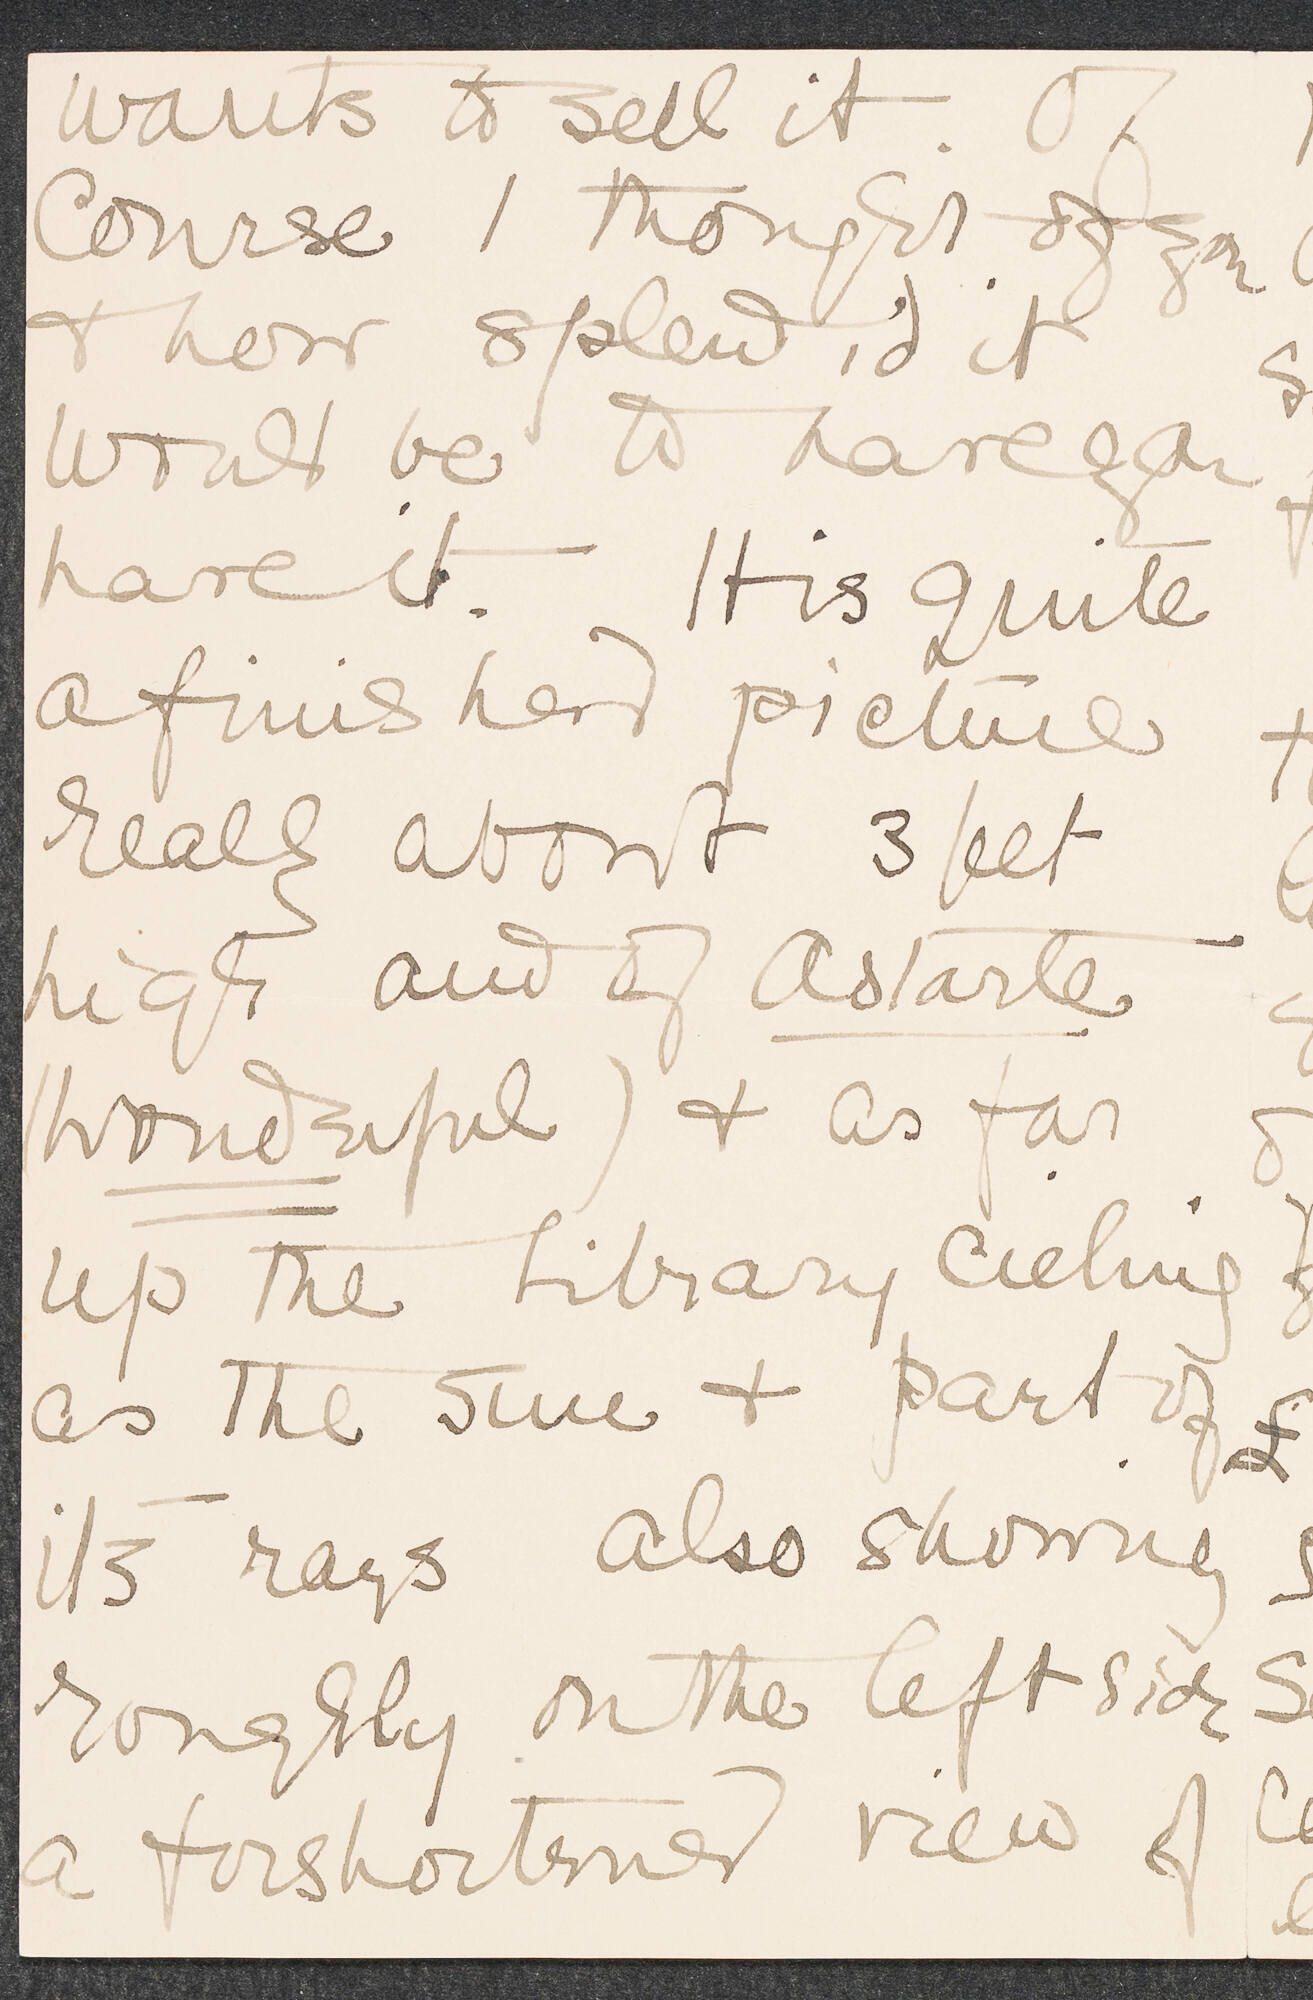 wants to sell it. Of
Course I thought of you
+ how splendid it
would be to have you
have it. It is quite
a finished picture
really about 3 feet
high and of Astarte
(wonderful) + as far
up the Library cieling
as the sune + part of
its rays also showing
roughly on the left side
a forshortened view of